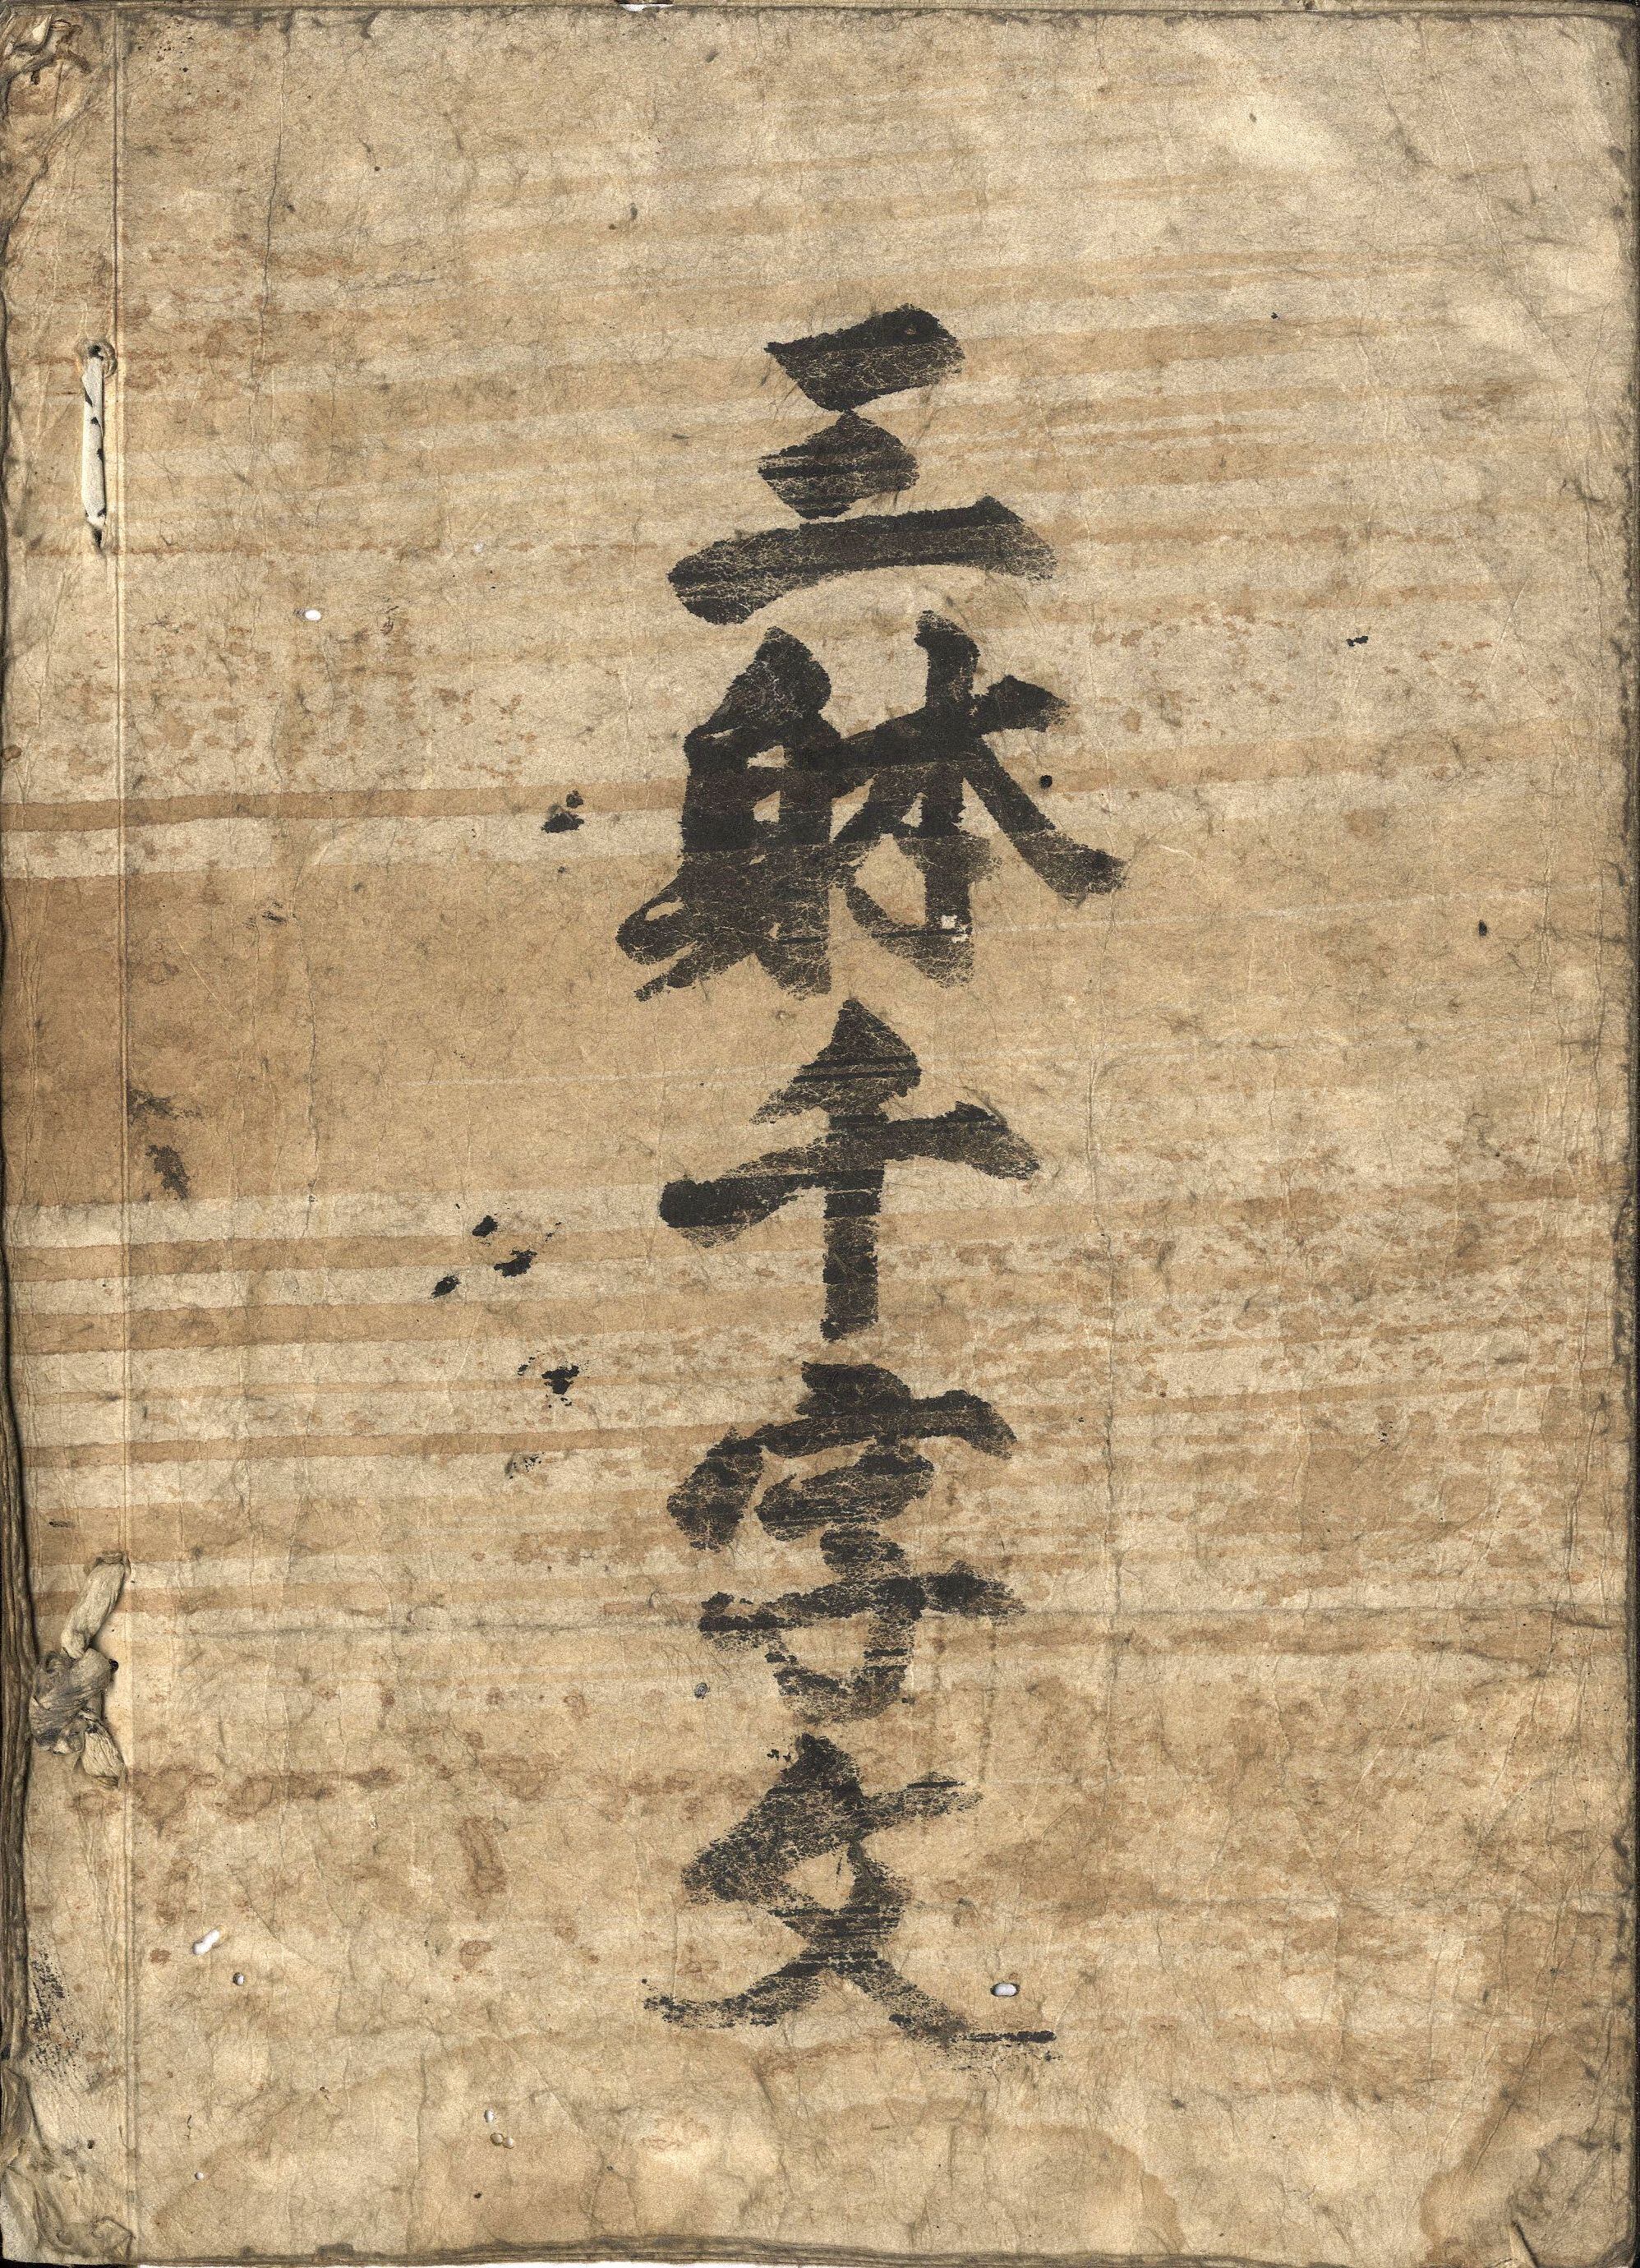 三躰千字文